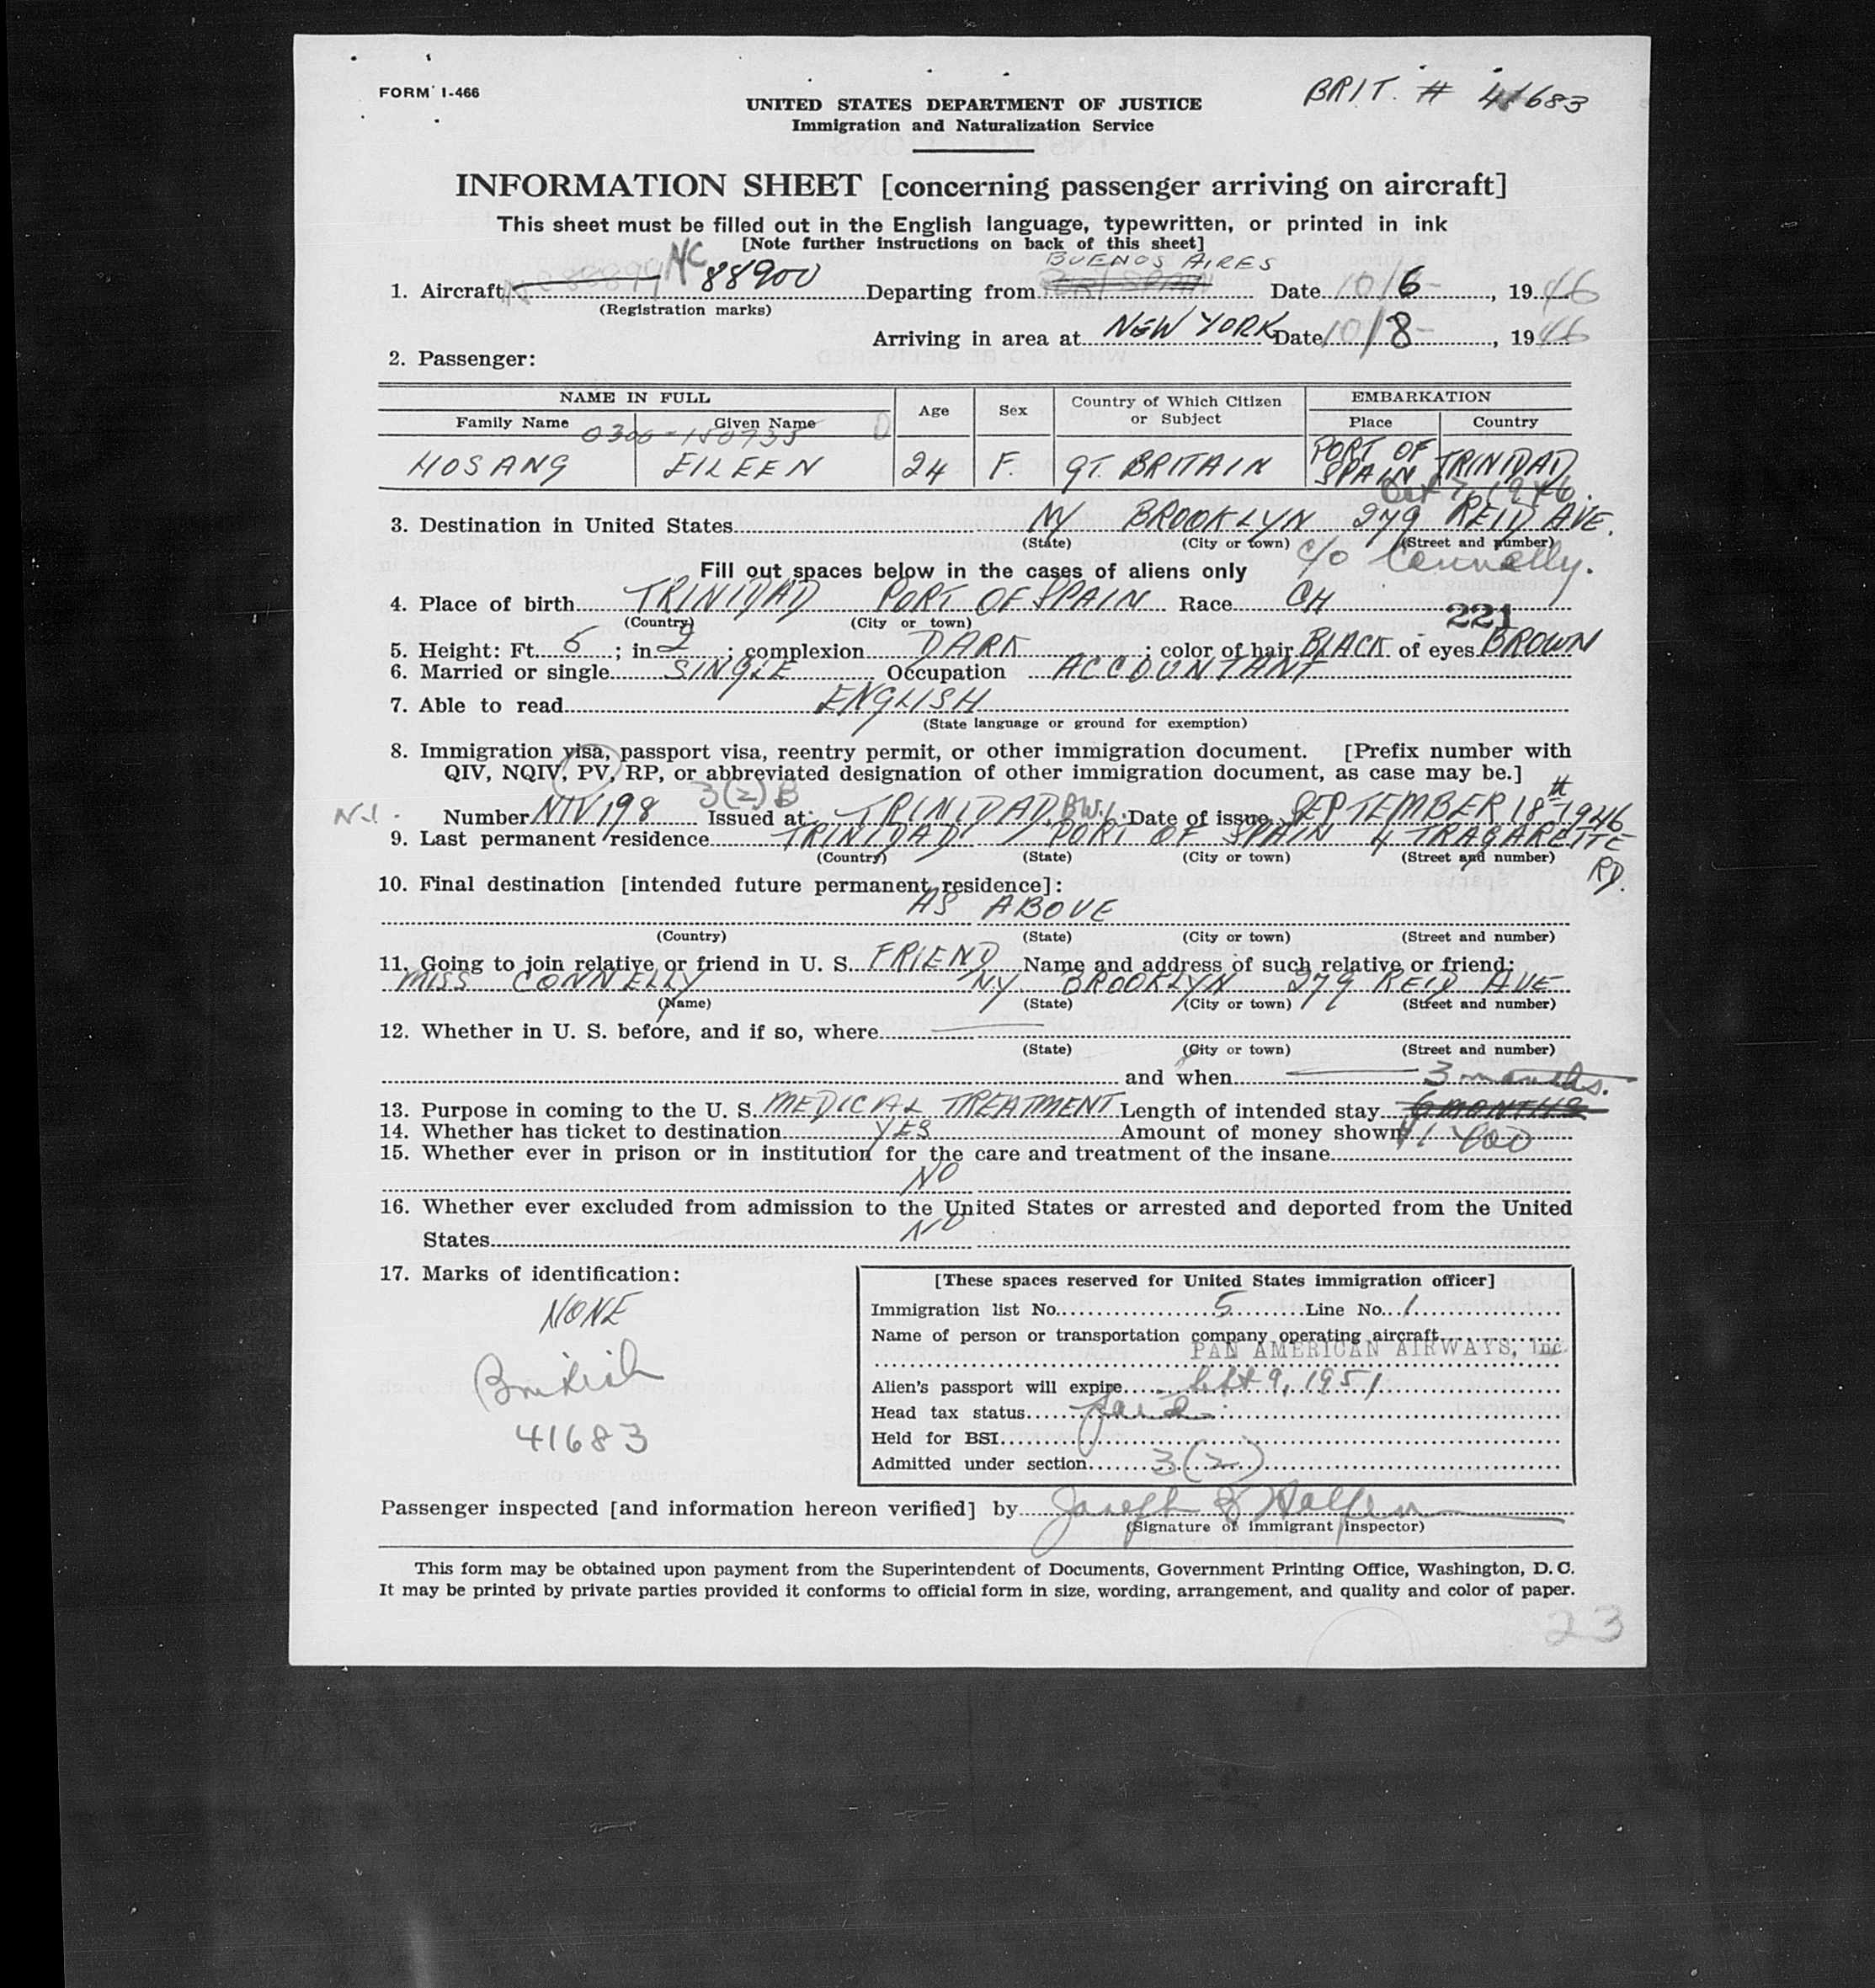 FORM I-466
BRIT. # 41683
UNITED STATES DEPARTMENT OF JUSTICE
Immigration and Naturalization Service
INFORMATION SHEET [concerning passenger arriving on aircraft]
This sheet must be filled out in the English language, typewritten, or printed in ink
[Note further instructions on back of this sheet]
BUENOS AIRES
1. Aircraft NC 88900 Departing from Date 10/6 , 1946
(Registration marks)
Arriving in area at NEW YORK Date 10/8 , 1946
2. Passenger:
NAME IN FULL Age Sex Country of Which Citizen or Subject EMBARKATION
Family Name Given Name Place Country
0300-150735
HOSANG EILEEN 24 F. GT. BRITAIN PORT OF SPAIN TRINIDAD
Oct 7, 1946.
3. Destination in United States NY BROOKLYN 279 REID AVE.
(State) (City or town) (Street and number)
c/o Connolly.
Fill out spaces below in the cases of aliens only
4. Place of birth TRINIDAD PORT OF SPAIN Race CH
(Country) (City or town)
221
5. Height: Ft. 5 ; in. 2 ; complexion DARK ; color of hair BLACK of eyes BROWN
6. Married or single SINGLE Occupation ACCOUNTANT
7. Able to read ENGLISH
(State language or ground for exemption)
8. Immigration visa, passport visa, reentry permit, or other immigration document. [Prefix number with
QIV, NQIV, PV, RP, or abbreviated designation of other immigration document, as case may be.]
3(2) B
N.I. Number NIV 198 Issued at TRINIDAD, B.W.I. Date of issue SEPTEMBER 18th 1946
9. Last permanent residence TRINIDAD / PORT OF SPAIN 4 TRAGAREITE RD.
(Country) (State) (City or town) (Street and number)
10. Final destination [intended future permanent residence]:
AS ABOVE
(Country) (State) (City or town) (Street and number)
11. Going to join relative or friend in U. S. FRIEND Name and address of such relative or friend:
MISS CONNELLY NY BROOKLYN 279 REID AVE
(Name) (State) (City or town) (Street and number)
12. Whether in U. S. before, and if so, where
(State) (City or town) (Street and number)
and when
3 months.
13. Purpose in coming to the U. S. MEDICAL TREATMENT Length of intended stay 6 MONTHS
14. Whether has ticket to destination YES Amount of money shown
15. Whether ever in prison or in institution for the care and treatment of the insane
NO
16. Whether ever excluded from admission to the United States or arrested and deported from the United
States NO
17. Marks of identification:
NONE
British
41683
[These spaces reserved for United States immigration officer]
Immigration list No. 5 Line No. 1
Name of person or transportation company operating aircraft
PAN AMERICAN AIRWAYS, Inc.
Alien's passport will expire Sept 9, 1951
Head tax status Paid
Held for BSI
Admitted under section 3(2)
Passenger inspected [and information hereon verified] by Joseph
(Signature of immigrant inspector)
This form may be obtained upon payment from the Superintendent of Documents, Government Printing Office, Washington, D. C.
It may be printed by private parties provided it conforms to official form in size, wording, arrangement, and quality and color of paper.
23